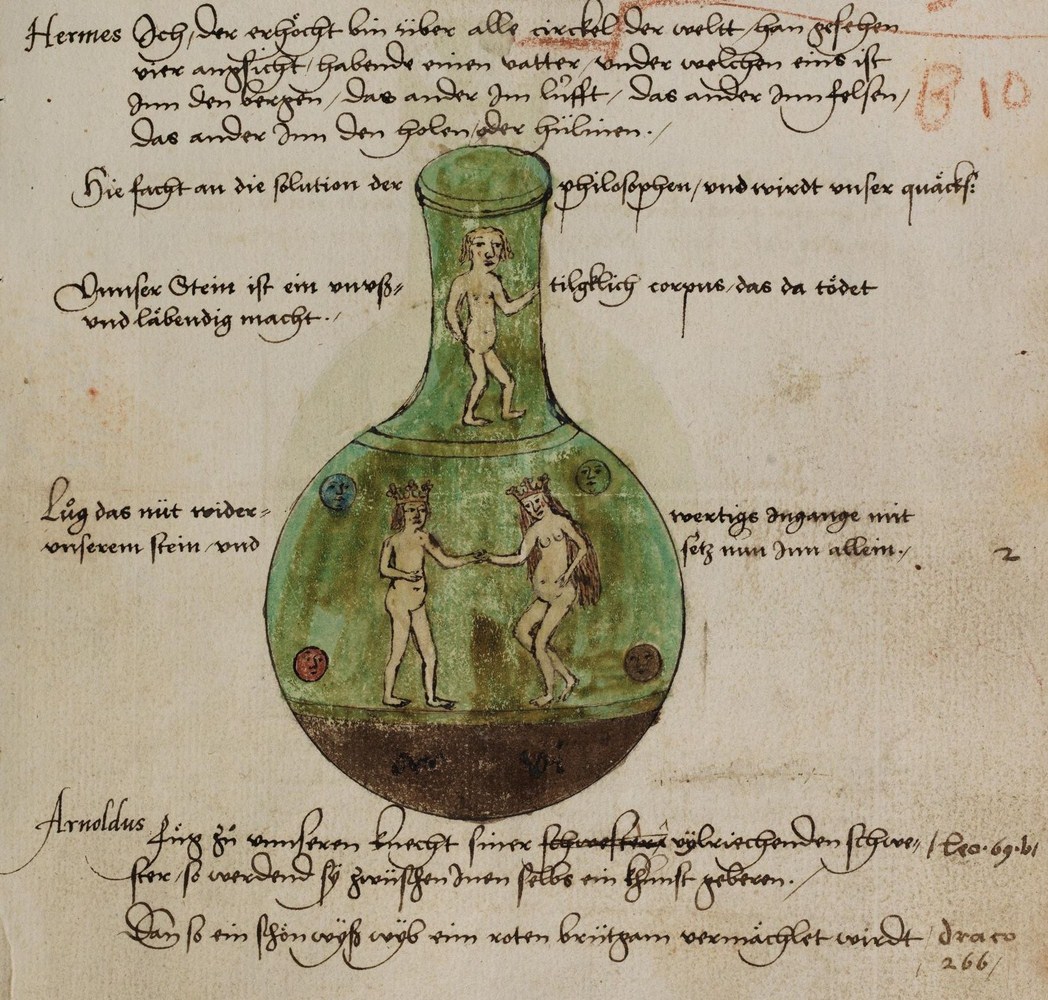 Hermes Ich, der erhöcht bin über alle circkel der weltt, han gesehen
vier angsicht, habende einen vatter, vnder welchen eins ist
Inn den bergen, das ander Im lufft, das ander Inn felsen,
das ander Inn den holen, oder hülinen.
B 10
Hie facht an die solution der philosophen, vnd wirdt vnser quäcks:
Vnnser Stein ist ein vnvß= tilgklich corpus, das da tödet
vnd läbendig macht.
Lůg das nüt wider= wertigs Ingange mit
vnserem stein, vnd setz nun Inn allein. 2
Arnoldus Füg zů vnnseren knecht siner schwestern vÿlriechenden schwe=
ster, so werdend sÿ zwüschen Inen selbs ein khunst geberen. leo. 69. b
Dan so ein schön wÿß wÿb eim roten brütgam vermächlet wirdt draco
266